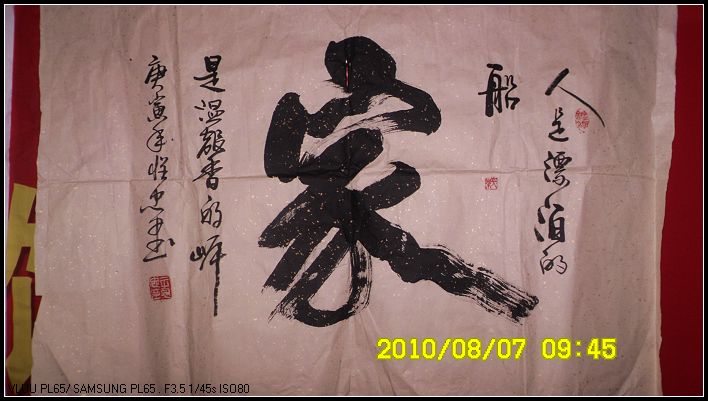 人是漂泊的
船
家
是温馨的岸
庚寅年 书
2010/08/07 09:45
VLUU PL65/ SAMSUNG PL65 , F3.5 1/45s ISO80